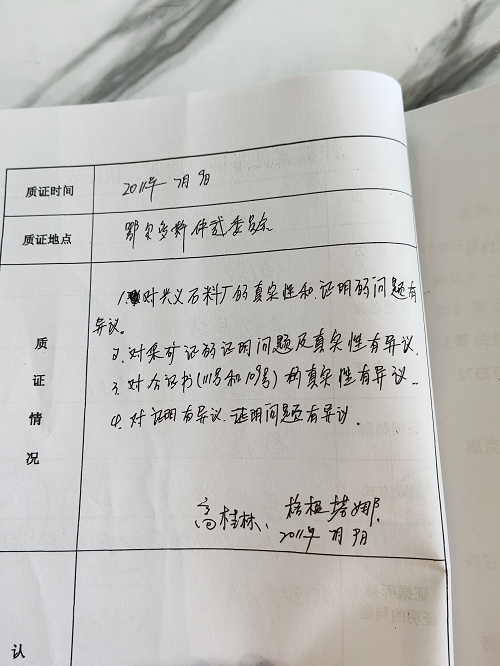 质证时间
2011年7月9日
质证地点
鄂尔多斯仲裁委员会
质证情况
1.对兴义石料厂的真实性和证明的问题有
异议。
2.对采矿证的证明问题及真实性有异议.
3.对公证书(111号和109号)的真实性有异议.
4.对证明有异议.证明问题有异议.
高桂林、
塔娜
2011年7月9日
认
证据所
证明的问题